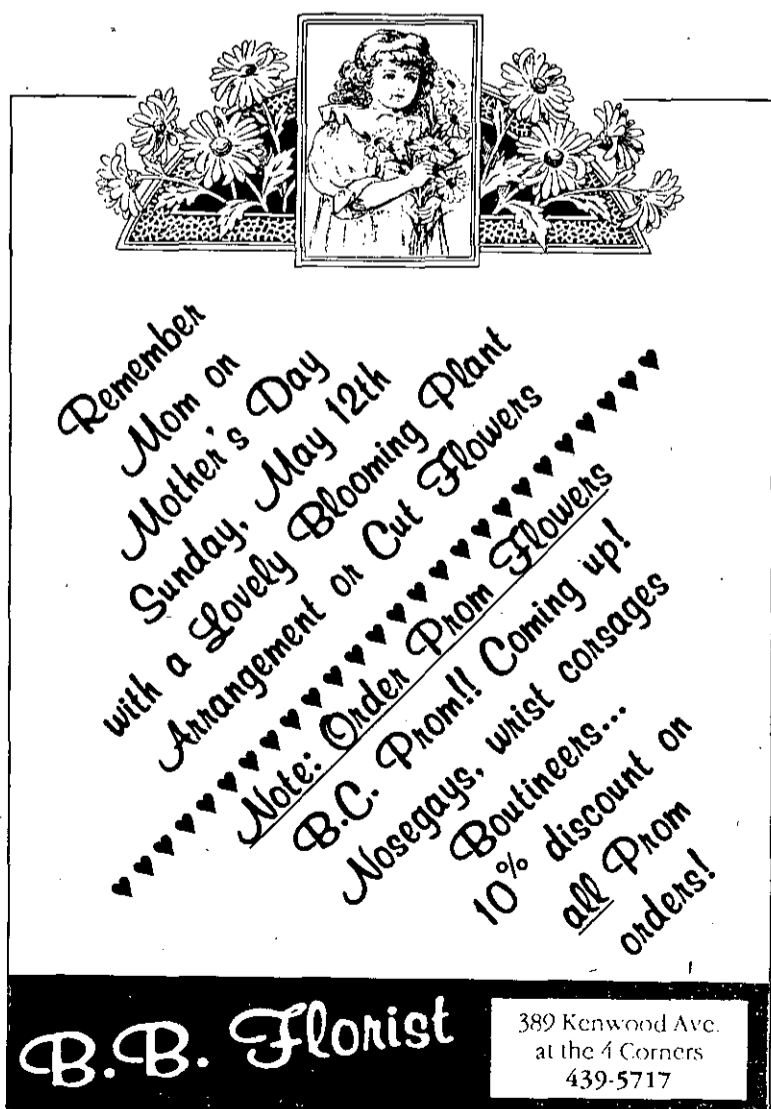 Remember
Mom on
Mother's Day
Sunday, May 12th
with a Lovely Blooming Plant
Arrangement or Cut Flowers
Note: Order Prom Flowers
B.C. Prom!! Coming up!
Nosegays, wrist corsages
Boutineers...
10% discount on
all Prom
orders!
B.B. Florist
389 Kenwood Ave.
at the 4 Corners
439-5717